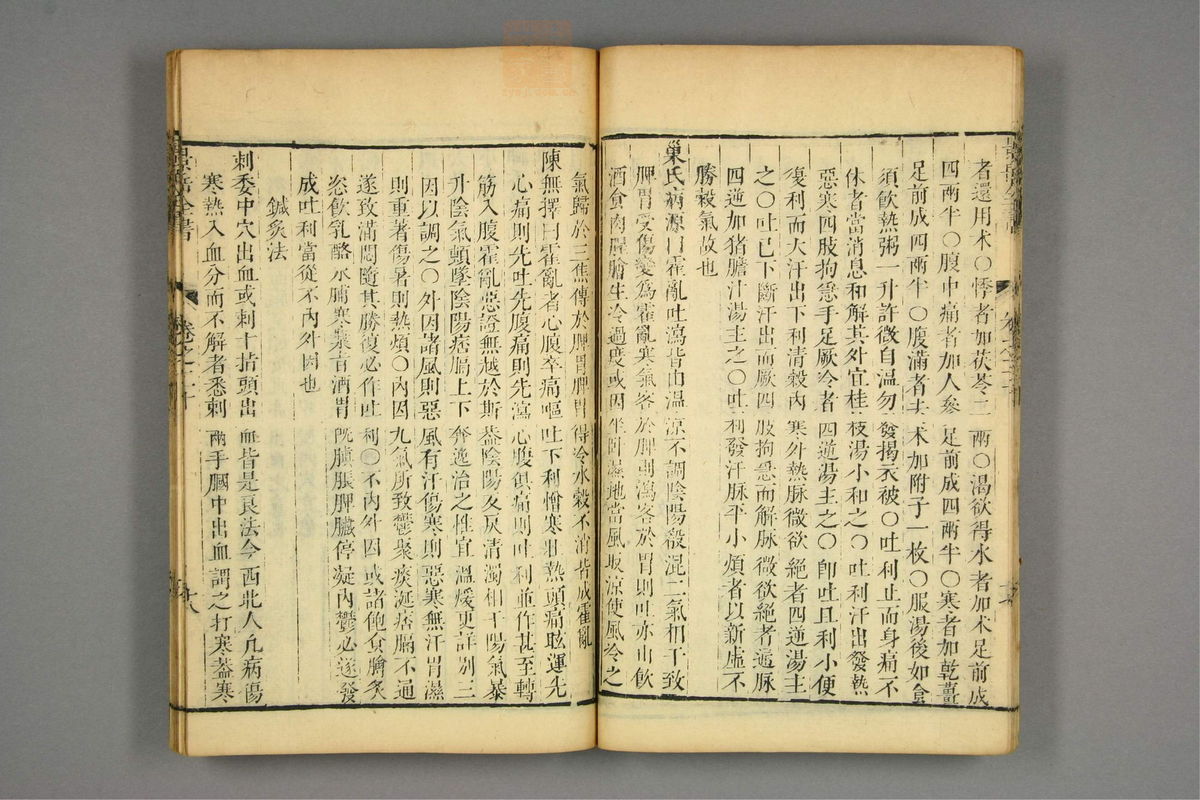 者還用术〇悸者加茯苓二兩〇渴欲得水者加术足前成
四兩半〇腹中痛者加人參足前成四兩半〇寒者加乾薑
足前成四兩半〇腹滿者去术加附子一枚〇服湯後如食
須飲熱粥一升許微自溫勿發揭衣被〇吐利止而身痛不
休者當消息和解其外宜桂枝湯小和之〇吐利汗出發熱
惡寒四肢拘急手足厥冷者四逆湯主之〇卽吐且利小便
復利而大汗出下利清穀內寒外熱脉微欲絕者四逆湯主
之〇吐已下斷汗出而厥四肢拘急而解脉微欲絕者通脉
四逆加猪膽汁湯主之〇吐利發汗脉平小煩者以新虛不
勝穀氣故也
巢氏病源曰霍亂吐瀉皆由溫涼不調陰陽殽混二氣相干致
脾胃受傷變爲霍亂寒氣客於脾則瀉客於胃則吐亦由飲
酒食肉腥膾生冷過度或因坐臥濕地當風取涼使風冷之
氣歸於三焦傳於脾胃脾胃得冷水穀不消皆成霍亂
陳無擇曰霍亂者心腹卒痛嘔吐下利憎寒壯熱頭痛眩運先
心痛則先吐先腹痛則先瀉心腹俱痛則吐利並作甚至轉
筋入腹霍亂惡證無越於斯蓋陰陽反戾清濁相干陽氣暴
升陰氣頓墜陰陽痞膈上下奔逸治之惟宜溫煖更詳別三
因以調之〇外因諸風則惡風有汗傷寒則惡寒無汗冒濕
則重著傷暑則熱煩〇內因九氣所致鬱聚痰涎痞膈不通
遂致滿悶隨其勝復必作吐利〇不內外因或諸飽食膾炙
恣飲乳酪氷脯寒漿旨酒胃旣䐜脹脾臟停凝內鬱必遂發
成吐利當從不內外因也
鍼灸法
刺委中穴出血或刺十指頭出血皆是良法今西北人凡病傷
寒熱入血分而不解者悉刺兩手膕中出血謂之打寒蓋寒
景岳全書
卷之二十
十八